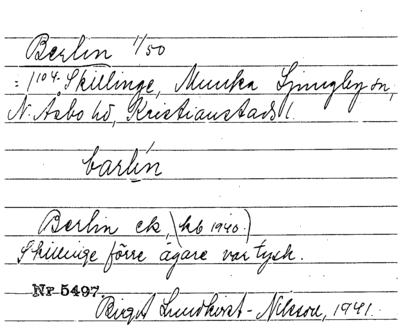 Berlin 1/50
: 1/104. Skillinge, Munka Ljungby sn,
N. Åsbo hd, Kristianstads l.
barlín
Berlin ek, (kb 1940.)
Skillinge förre ägare var tysk.
Nr 5497
Birgit Lundkvist-Nilsson, 1941.